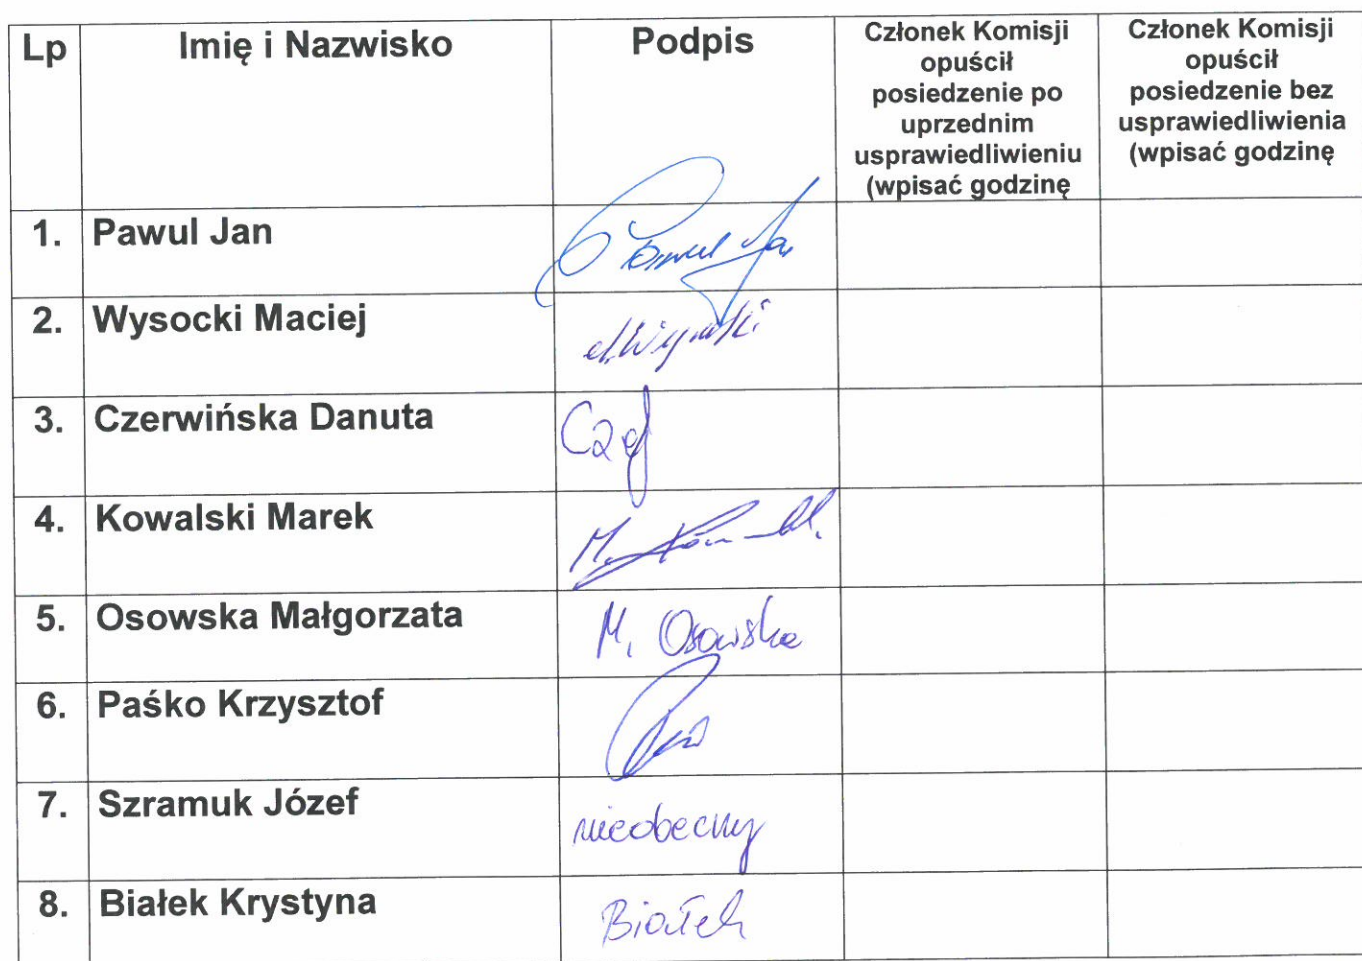 Lp Imię i Nazwisko Podpis Członek Komisji opuścił posiedzenie po uprzednim usprawiedliwieniu (wpisać godzinę Członek Komisji opuścił posiedzenie bez usprawiedliwienia (wpisać godzinę
1. Pawul Jan Pawul Jan
2. Wysocki Maciej M. Wysocki
3. Czerwińska Danuta
4. Kowalski Marek
5. Osowska Małgorzata M. Osowska
6. Paśko Krzysztof
7. Szramuk Józef nieobecny
8. Białek Krystyna Białek